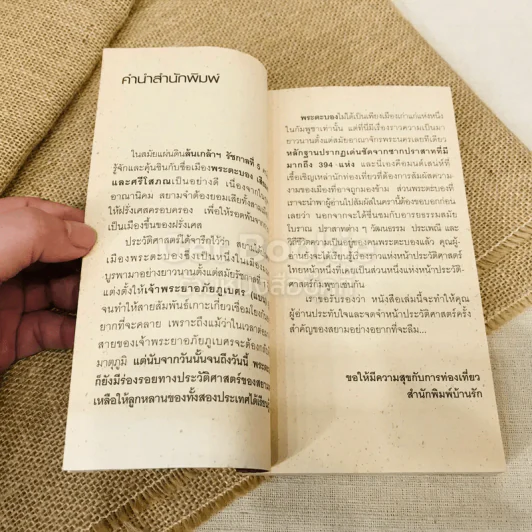 คำนำสำนักพิมพ์
ในสมัยแผ่นดินล้นเกล้าฯ รัชกาลที่ 5
รู้จักและคุ้นชินกับชื่อเมืองพระตะบอง
และศรีโสภณเป็นอย่างดี เนื่องจากใน
อาณานิคม สยามจำต้องยอมเสีย
ให้ฝรั่งเศสครอบครอง เพื่อให้รอดพ้นจาก
เป็นเมืองขึ้นของฝรั่งเศส
ประวัติศาสตร์ได้จารึกไว้ว่า
เมืองพระตะบองซึ่งเป็นหนึ่งใน
บูรพามาอย่างยาวนานตั้งแต่สมัยรัชกาลที่
แต่งตั้งให้เจ้าพระยาอภัยภูเบศร (แบน)
จนทำให้สายสัมพันธ์เกาะเกี่ยวเชื่อมโยง
ยากที่จะคลาย เพราะถึงแม้ว่าในเวลา
สายของเจ้าพระยาอภัยภูเบศรจะต้อง
มาตุภูมิ แต่นับจากวันนั้นจนถึงวันนี้
ก็ยังมีร่องรอยทางประวัติศาสตร์ของสยาม
เหลือให้ลูกหลานของทั้งสองประเทศได้เรียนรู้
พระตะบองไม่ได้เป็นเพียงเมืองเก่าแก่แห่งหนึ่ง
ในกัมพูชาเท่านั้น แต่ที่นี่มีเรื่องราวความเป็นมา
ยาวนานตั้งแต่สมัยอาณาจักรพระนครเลยทีเดียว
หลักฐานปรากฏเด่นชัดจากซากปราสาทที่มี
มากถึง 394 แห่ง และนี่เองคือมนต์เสน่ห์ที่
เชื้อเชิญเหล่านักท่องเที่ยวที่ต้องการสัมผัสความ
งามของเมืองที่อาจถูกมองข้าม ส่วนพระตะบองที่
เราจะนำพาผู้อ่านไปสัมผัสในครานี้ต้องขอบอกก่อน
เลยว่า นอกจากจะได้ชื่นชมกับอารยธรรมสมัย
โบราณ ปราสาทต่าง ๆ วัฒนธรรม ประเพณี และ
วิถีชีวิตความเป็นอยู่ของคนพระตะบองแล้ว คุณผู้-
อ่านยังจะได้เรียนรู้เรื่องราวแห่งหน้าประวัติศาสตร์
ไทยหน้าหนึ่งที่เคยเป็นส่วนหนึ่งแห่งหน้าประวัติ-
ศาสตร์กัมพูชาเช่นกัน
เราขอรับรองว่า หนังสือเล่มนี้จะทำให้คุณ
ผู้อ่านประทับใจและจดจำหน้าประวัติศาสตร์ครั้ง
สำคัญของสยามอย่างยากที่จะลืม...
ขอให้มีความสุขกับการท่องเที่ยว
สำนักพิมพ์บ้านรัก